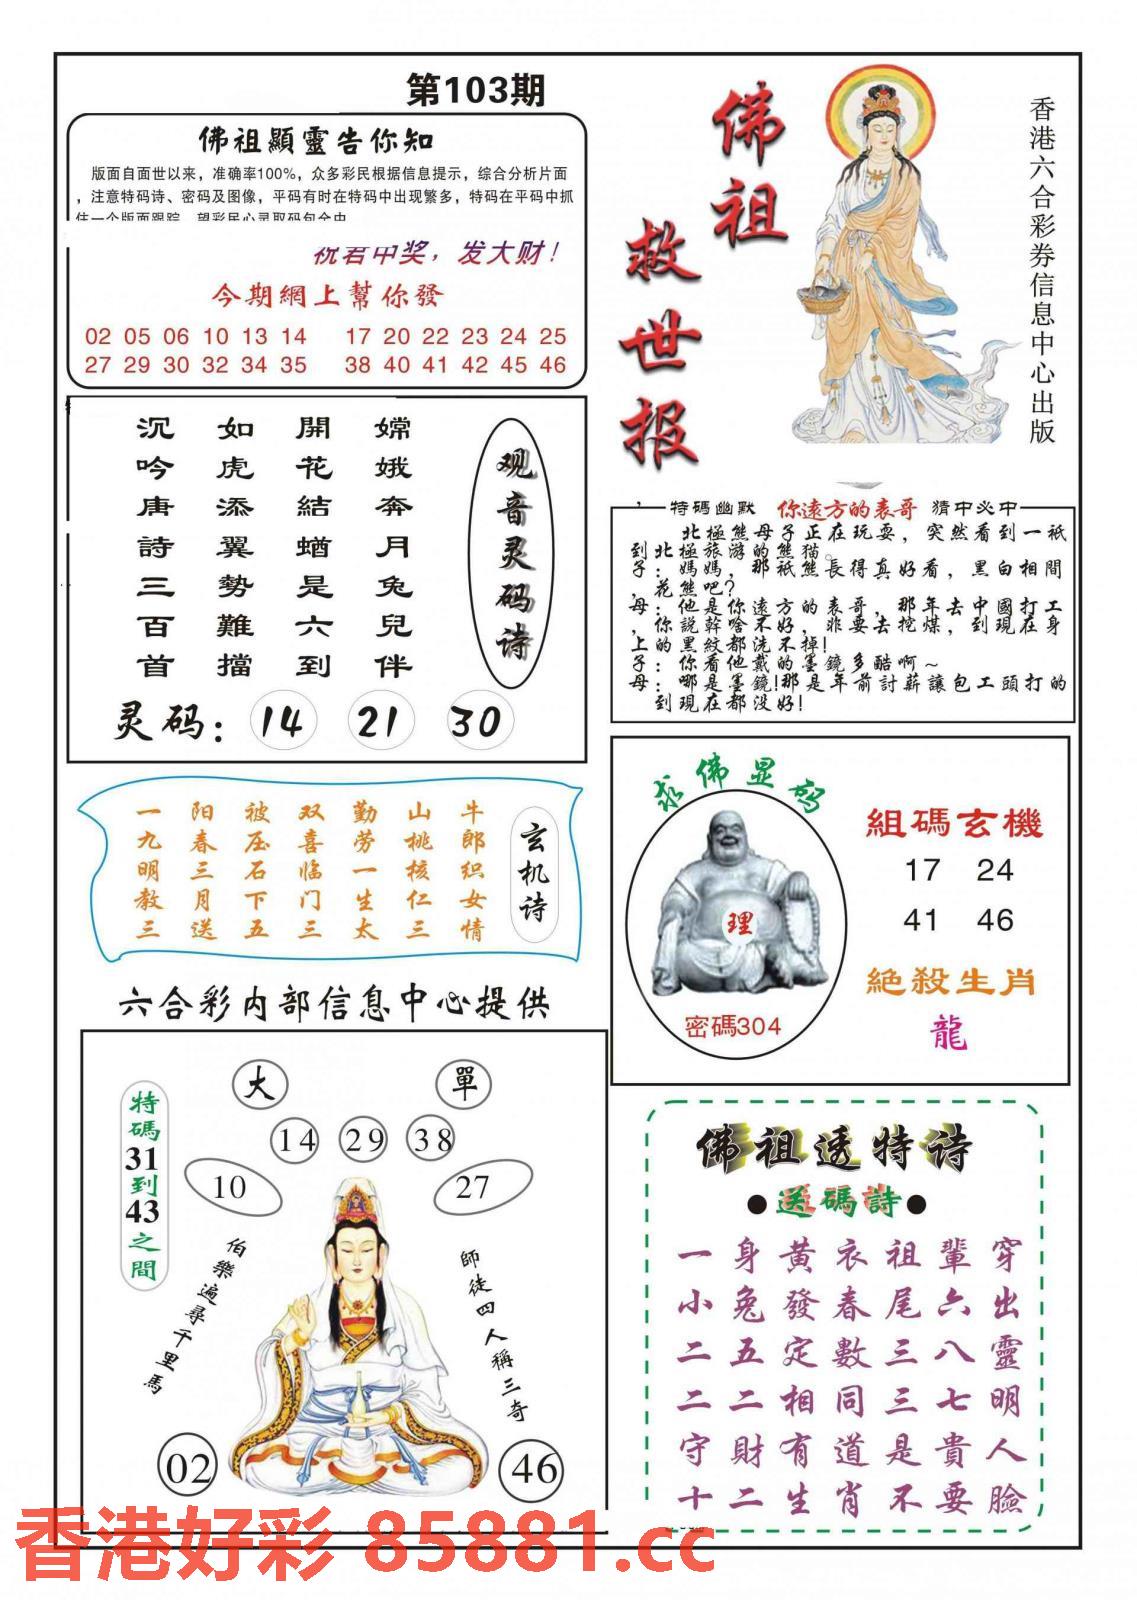 第103期
佛祖顯靈告你知
版面自面世以来，准确率100%，众多彩民根据信息提示，综合分析片面
，注意特码诗、密码及图像，平码有时在特码中出现繁多，特码在平码中抓
住一个版面跟踪，望彩民心灵取码包全中
祝君中奖，发大财！
今期網上幫你發
02 05 06 10 13 14 17 20 22 23 24 25
27 29 30 32 34 35 38 40 41 42 45 46
佛祖救世报
香港六合彩券信息中心出版
观音灵码诗
嫦娥奔月兔兒伴
開花結蝤是六到
如虎添翼勢難擋
沉吟唐詩三百首
灵码：14 21 30
特碼幽默 你遠方的表哥 猜中必中
北極熊母子正在玩耍，突然看到一衹
到北極旅游的熊猫。
子：媽媽，那衹熊長得真好看，黑白相間
，花熊吧？
母：他是你遠方的表哥，那年去中國打工
，你説幹啥不好，非要去挖煤，到現在身
上的黑紋都洗不掉！
子：你看他戴的墨鏡多酷啊～
母：哪是墨鏡！那是年前討薪讓包工頭打的
到現在都没好！
玄机诗
牛郎织女情
山桃核仁三
勤劳一生太
双喜临门三
被压石下五
阳春三月送
一九明教三
求佛显码
理
密碼304
組碼玄機
17 24
41 46
絕殺生肖
龍
六合彩内部信息中心提供
大 單
14 29 38
10 27
特碼31到43之間
伯樂遍尋千里馬
師徒四人稱三奇
02 46
佛祖透特诗
●送碼詩●
一身黄衣祖輩穿
小兔發春尾六出
二五定數三八靈
二二相同三七明
守財有道是貴人
十二生肖不要臉
香港好彩 85881.cc